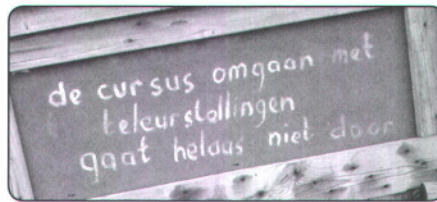 de cursus omgaan met
teleurstellingen
gaat helaas niet door